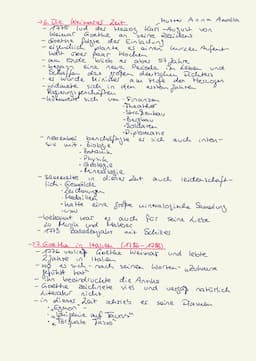 → 6. Die Weimarer Zeit
Mutter Anna Amalia
- 1775 lud der Herzog Karl August von
Weimar Goethe an seine Residenz
- Goethe folgte der Einladung
- eigentlich plante er einen kurzen Aufent-
halt über paar Wochen
- am Ende blieb er aber 57 Jahre
- begann eine neue Periode im Leben und
Schaffen des großen deutschen Dichters
- er wurde Minister am Hofe des Herzogs
- widmete sich in den ersten Jahren
Regierungsgeschäften
- kümmerte sich um Finanzen
- Theater
- Straßenbau
- Bergbau
- Soldaten
- Diplomatie
- nebenbei beschäftigte er sich auch inten-
siv mit: - Biologie
- Botanik
- Physik
- Geologie
- Mineralogie
- sammelte in dieser Zeit auch leidenschaft-
lich - Gemälde
- Zeichnungen
- Medaillen
- hatte eine große mineralogische Sammlung
usw
- bekannt war er auch für seine Liebe
zu Musik und Malerei
- Balladenjahr mit Schiller
→ 7. Goethe in Italien (1786-1788)
- 1786 verließ Goethe Weimar und lebte
2 Jahre in Italien
- wo er sich - nach seinen Worten - "zuhause
gefühlt hat"
- ihn beeindruckte die Antike
- Goethe zeichnete viel und vergaß natürlich
Literatur nicht
- in dieser Zeit schrieb er seine Dramen
- "Egmont" -
- "Iphigenie auf Tauris"
- "Torquato Tasso"